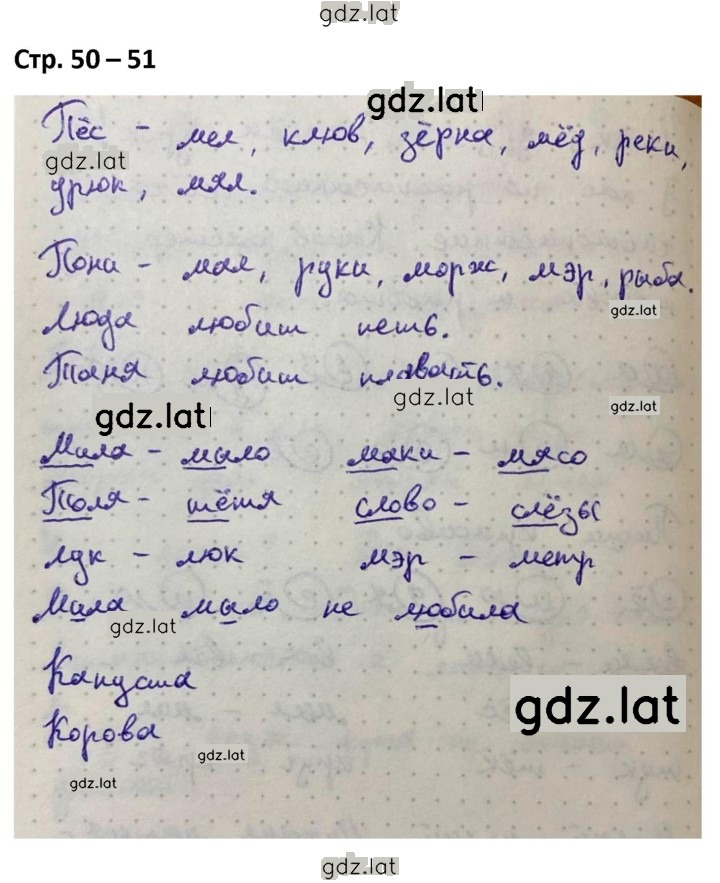 gdz.lat
Стр. 50 – 51
gdz.lat
Пёс – мел, клюв, зёрна, мёд, реки,
gdz.lat
урюк, мял.
Пони – мал, руки, морж, мэр, рыба.
gdz.lat
Люда любит петь.
Таня любит плавать.
gdz.lat
gdz.lat
gdz.lat
Мила – мыло маки – мясо
Толя – тётя слово – слёзы
лук – люк мэр – метр
Мила мыло не любила
gdz.lat
Капуста
gdz.lat
Корова
gdz.lat
gdz.lat
gdz.lat